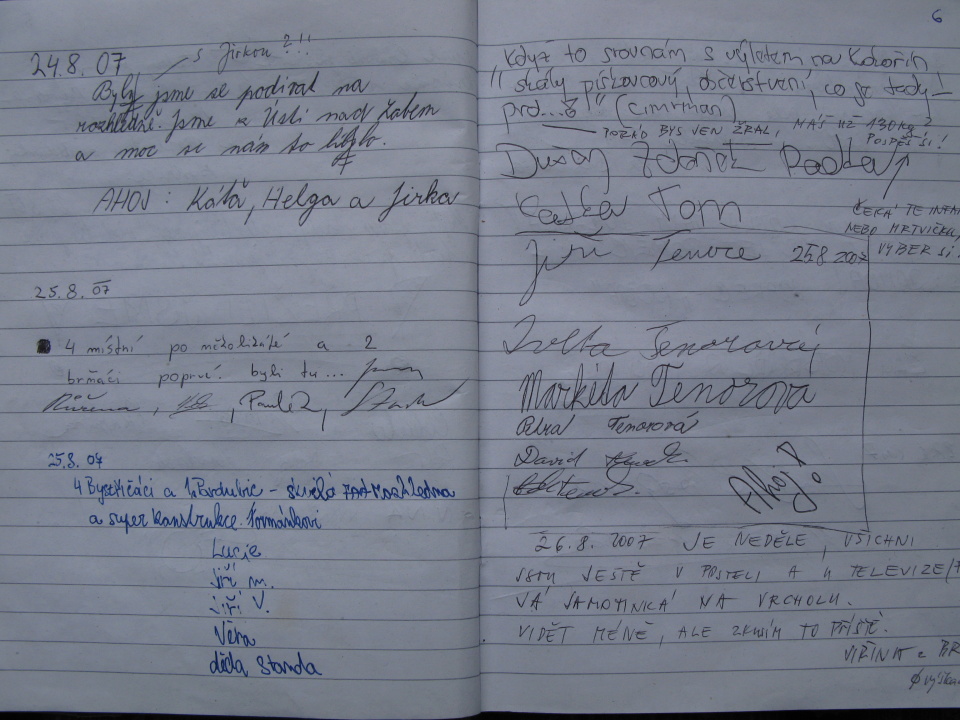 24.8.07
s Jirkou?!!
Byly jsme se podívat na
rozhledně. Jsme z Ústí nad Labem
a moc se nám to líbylo.
AHOJ: Kátá, Helga a Jirka
25.8.07
4 místní po několikáté a 2
brňáci poprvé. byli tu...
Růžena,
25.8.07
4 Bystřičáci a 1 Pardubic - skvělá rozhledna
a super konstrukce. Formánkovi
Lucie
Jiří M.
Jiří V.
Věra
děda Standa
6
Když to srovnám s výletem na Kokořín,
"skály pískovcový, občerstvení, co je tady -
prd...!" (Cimrman)
POŘÁD BYS JEN ŽRAL, MÁŠ UŽ 130kg?
POSPĚŠ SI!
Dušan Zdeněk Radka
Katka Tom
ČEKÁ TĚ INFAR
NEBO MRTVIČKA,
VYBER SI!
Jiří Tenore 25.8 2007
Iveta Tenorová
Markéta Tenorova
Petra Tenorová
David
Ahoj!
26.8.2007 JE NEDĚLE, VŠICHNI
JSOU JEŠTĚ V POSTELI A U TELEVIZE
SAMOTINKÁ NA VRCHOLU.
VIDĚT MÉNĚ, ALE ZKUSÍM TO PŘÍŠTĚ.
Z BR